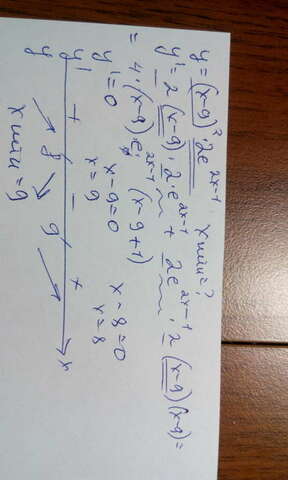 y = (x-9)² · 2e^{2x-1} x min?
y' = 2(x-9) · 2 · e^{2x-1} + 2e^{2x-1} · 2(x-9)(x-9) =
= 4 · (x-9) · e^{2x-1} (x-9+1)
y' = 0 x-9=0 x-8=0
x=9 x=8
y' + 8 - 9 + x
y
x min = 9